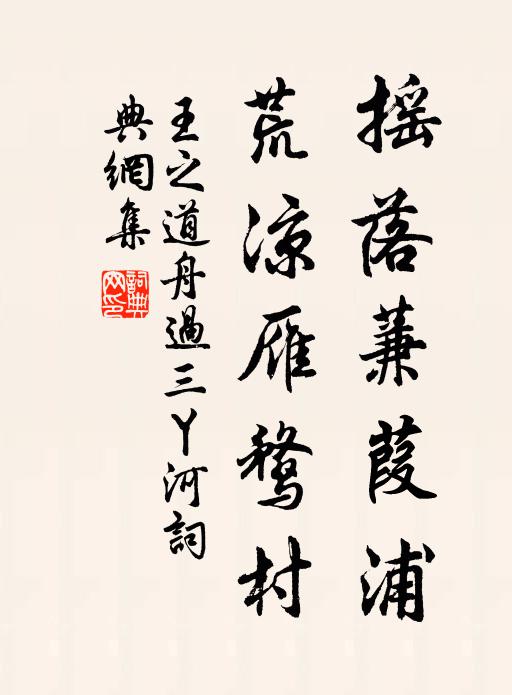 摇落蒹葭浦
荒凉雁鹜村
王之道舟過三丫河詞
典網集
詞典網印